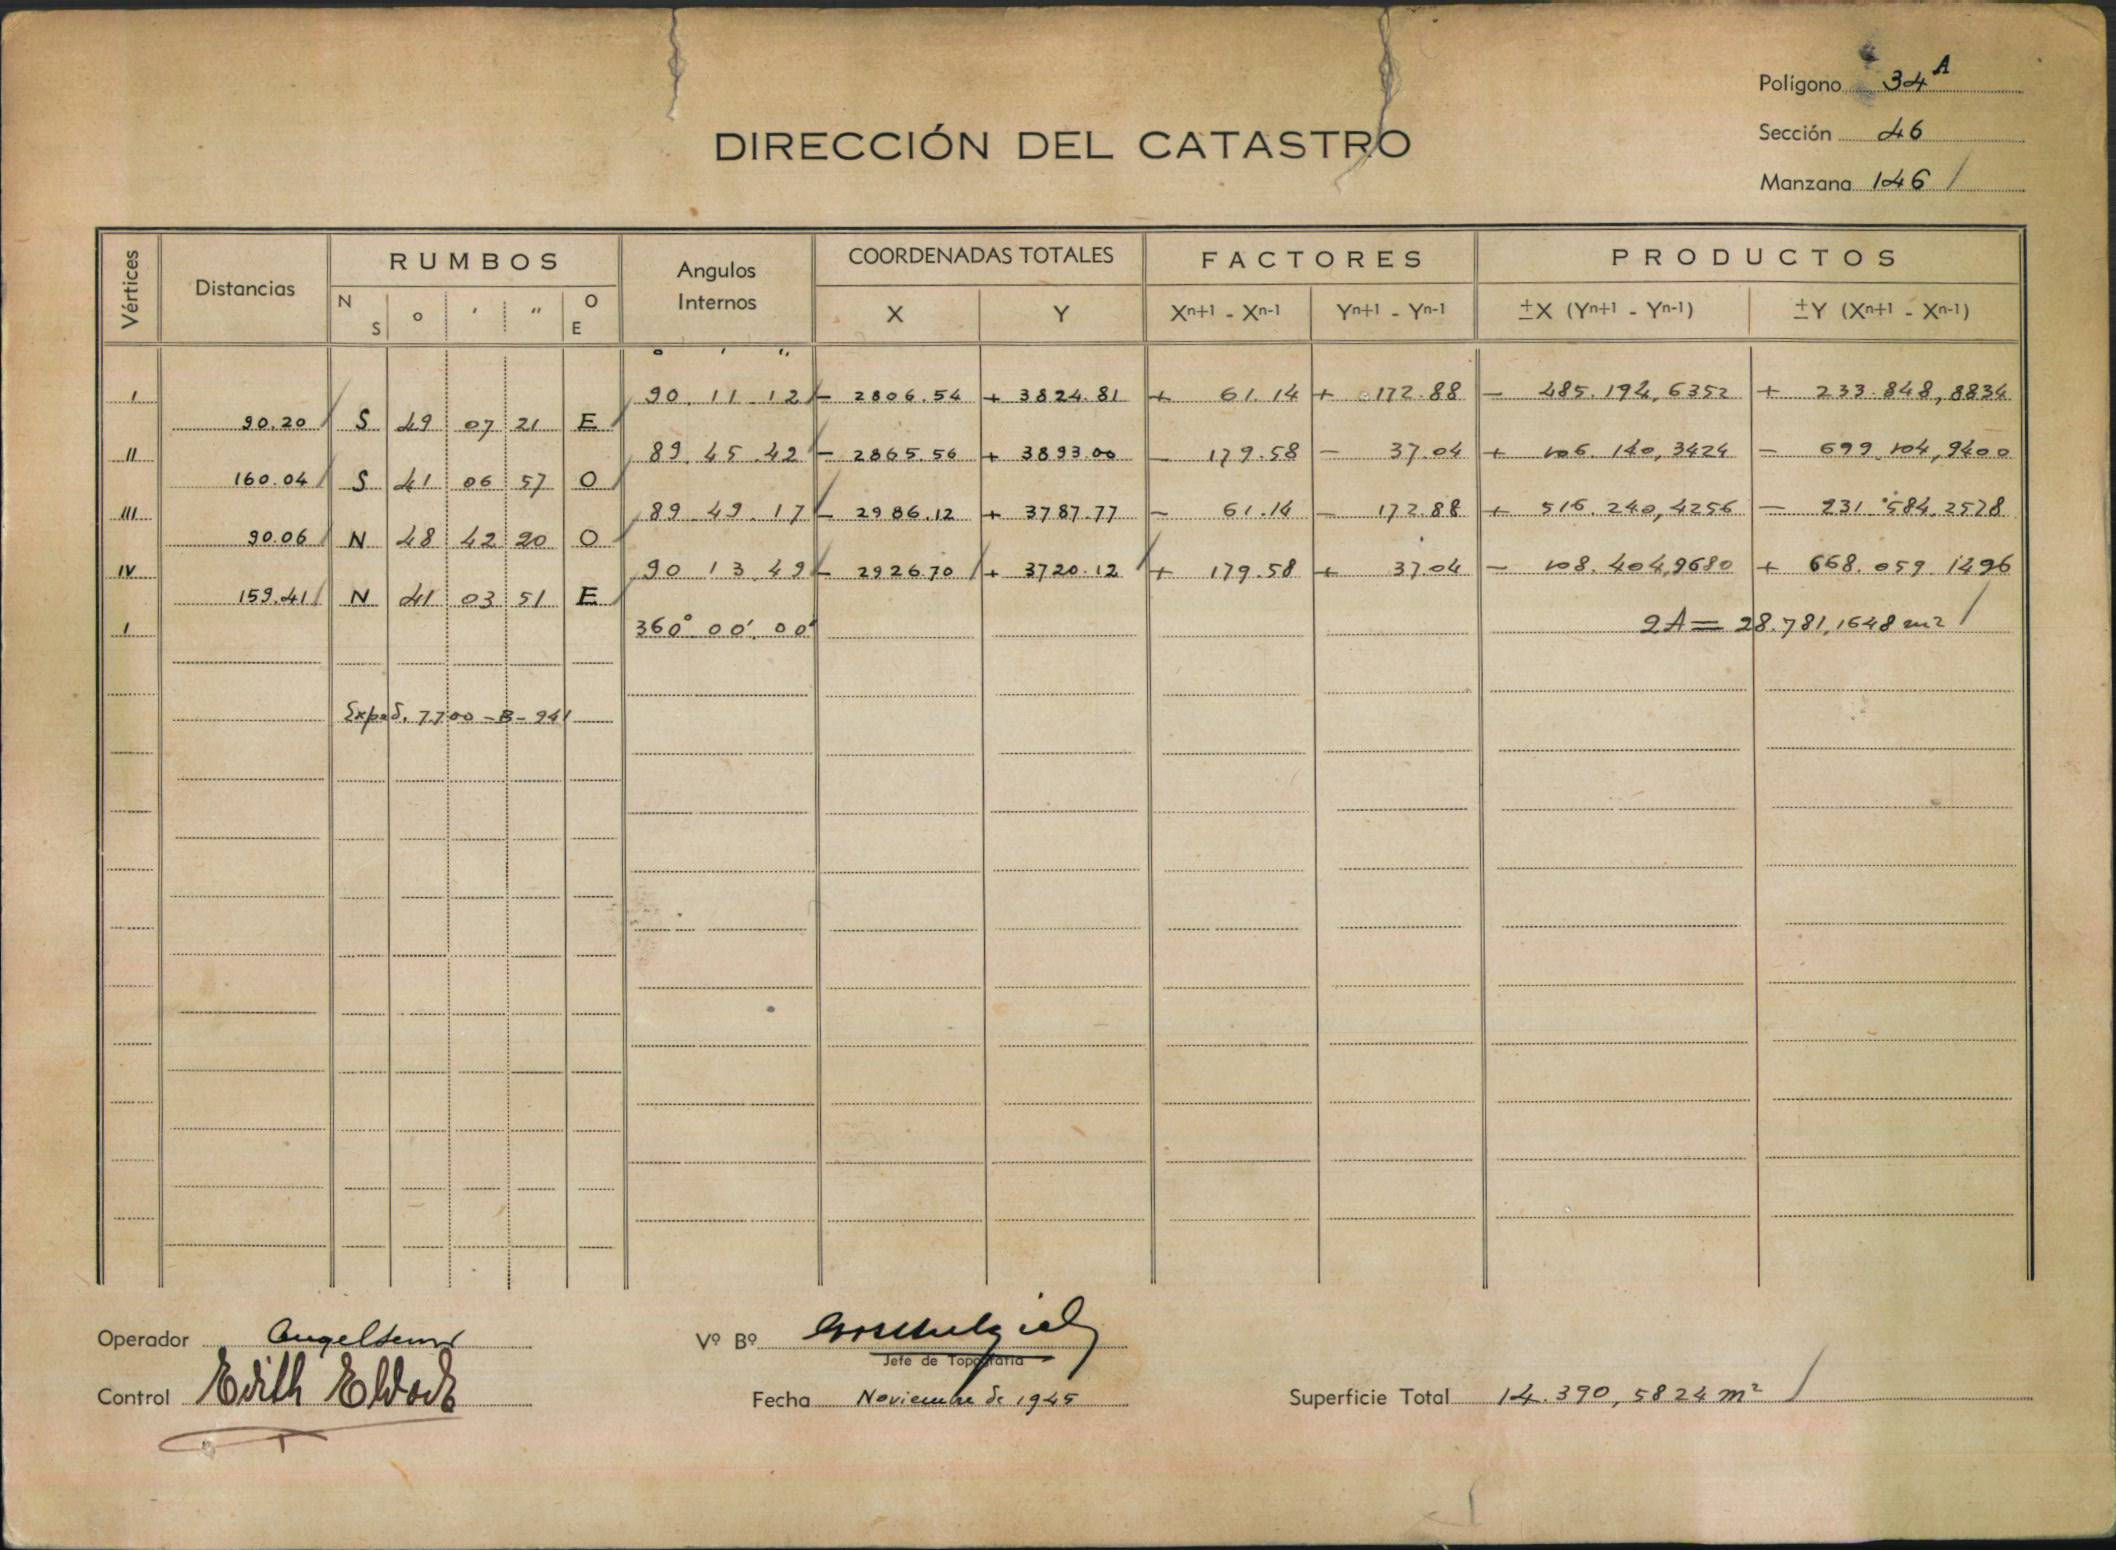 Polígono 34 A
DIRECCIÓN DEL CATASTRO
Sección 46
Manzana 146 /
Vértices Distancias RUMBOS Angulos Internos COORDENADAS TOTALES FACTORES PRODUCTOS
N S ° ' " O E X Y Xn+1 - Xn-1 Yn+1 - Yn-1 ±X (Yn+1 - Yn-1) ±Y (Xn+1 - Xn-1)
° ' "
I 90. 11. 12 - 2806.54 + 3824.81 + 61.14 + 172.88 - 485.194,6352 + 233.848,8834
90.20 S 49 07 21 E
II 89. 45. 42 - 2865.56 + 3893.00 - 179.58 - 37.04 + 106.140,3424 - 699.104,9400
160.04 S 41 06 57 O
III 89 49. 17 - 2986.12 + 3787.77 - 61.14 - 172.88 + 516.240,4256 - 231.584.2578
90.06 N 48 42 20 O
IV 90 13. 49 - 2926.70 + 3720.12 + 179.58 + 37.04 - 108.404,9680 + 668.059.1496
159.41 N 41 03 51 E
I 360° 00' 00" 2A = 28.781,1648 m2 /
Exped. 7700 - B - 941
Operador
Vº Bº
Jefe de Topografía
Control Edith
Fecha Noviembre de 1945
Superficie Total 14.390,5824 m² /